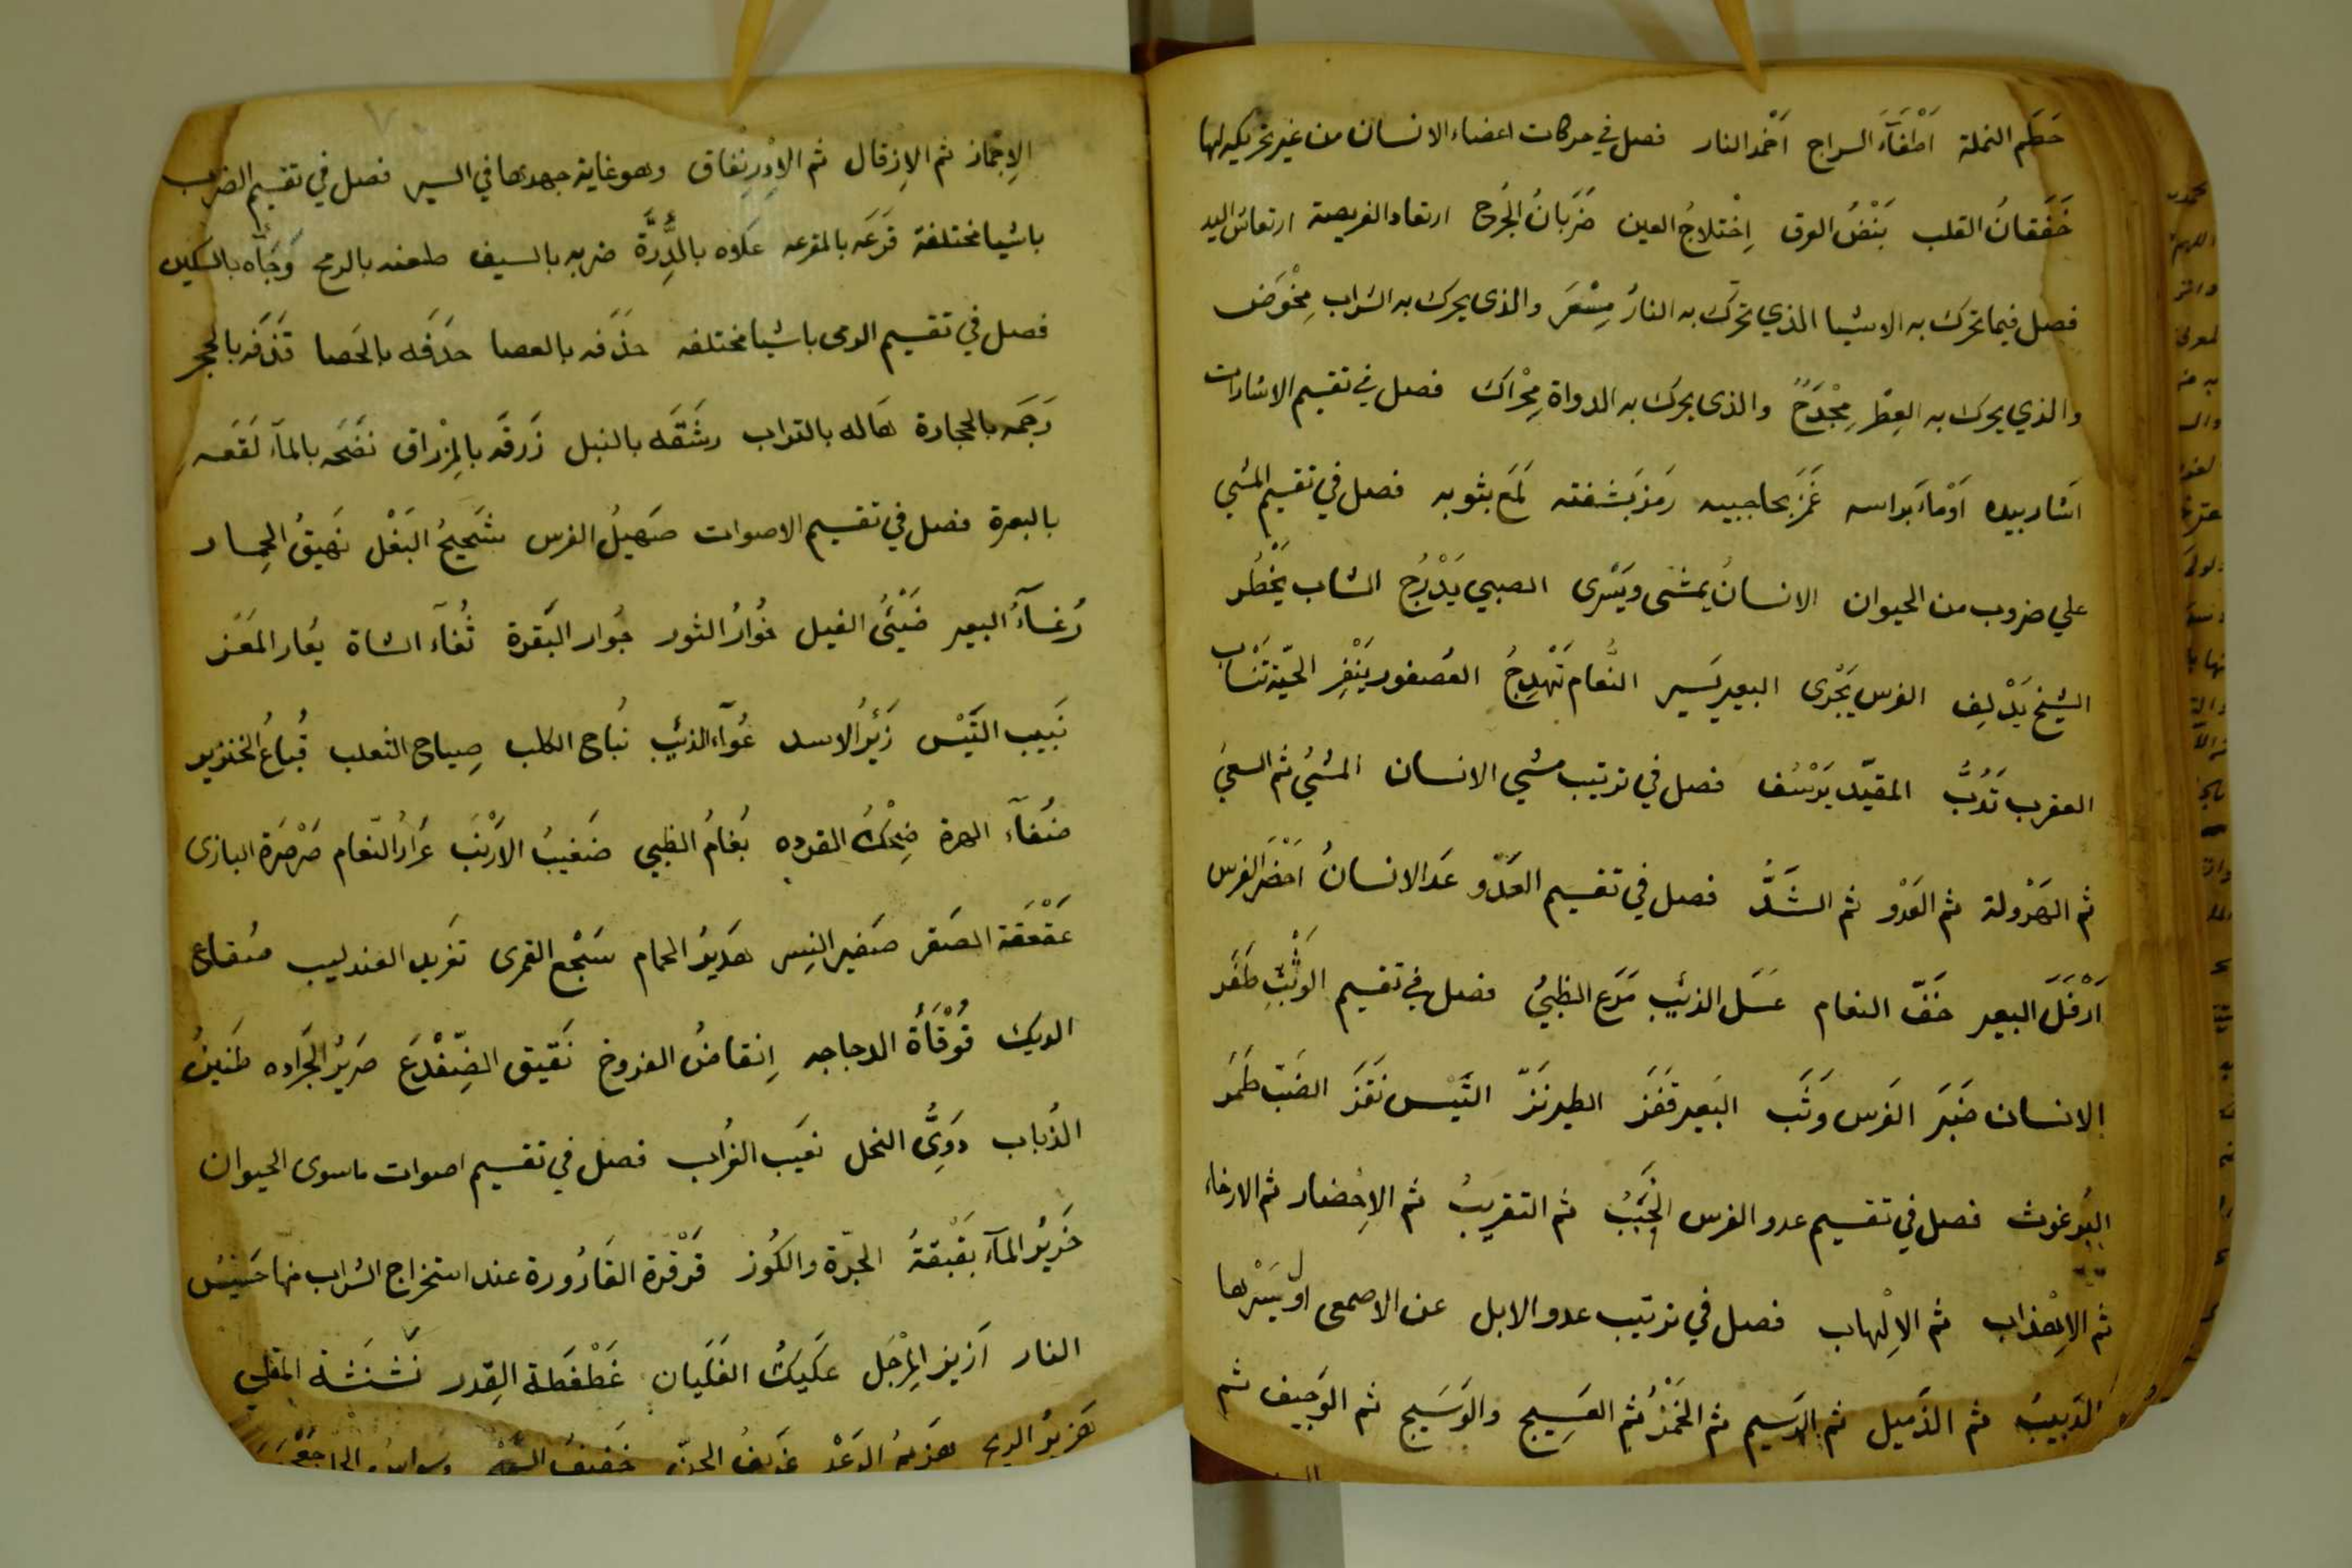 حَطَم النملة اَطْفَاَءَ السراج اَخْمد النار فصل في حركات اعضاء الانسان من غير تحريكه لها
خَفَقانُ القلب نَبْضُ العرق اِخْتلاجُ العين ضَرَبانُ الجُرح ارتعاد الفريصة ارتعاش اليد
فصل فيما تحرك به الاشيا الذي تحرّك به النارُ مِسْعَر والذى يحرك به الشراب مِخْوَض
والذي يحرك به العِطْر مِجْدَحٌ والذى يحرك به الدواة مِحْراك فصل في تقسيم الاشارات
اَشار بيده اَوْماءَ براسه غَمَزَ بحاجبيه رمَز بَشفته لَمَع بثوبه فصل في تقسيم المشي
علي ضروب من الحيوان الانسانُ يمشى ويَسْرى الصبي يَدْرُج الشاب يَخْطُر
الشيخ يَدْلِف الفرس يَجْرى البعير يَسير النَّعام تَهْدِجُ العُصفور يَنْقِز الحيّة تَنْساب
العقرب تَدُبُّ المقيّد يَرْسُف فصل في ترتيب مشي الانسان المشيُ ثم السعيُ
ثم الهَرْولة ثم العَدْو ثم الشَدُّ فصل في تقسيم العَدْو عَدَا الانسانُ اَحْضَر الفرس
اَرْقَلَ البعير خَفّ النعام عَسَل الذئب مَزَع الظبيُ فصل في تقسيم الوَثْبِ طَفَر
الانسان ضَبَر الفرس وَثَب البَعير قَفَز الطير نَزّ التَّيْس نَقَزَ الضبّ طَمَر
البُرغوث فصل في تقسيم عدو الفرس الخَبَبُ ثم التقريبُ ثم الاِحْضار ثم الارخاء
ثم الاِهْذاب ثم الاِلْهاب فصل في ترتيب عدو الابل عن الاصمعى اوّل سَيْرها
الدَبيبُ ثم الذَميل ثم الرَسيم ثم الخَمْدُ ثم العَسِيج والوَسَيج ثم الوَجيف ثم
الاِجْماز ثم الاِرْقال ثم الاِدْرِنْفاق وهو غاية جهدها في السير فصل في تقسيم الضرب
باشيا مختلفة قَرَعَه بالمقرعه عَلاه بالدِّرَّة ضربه بالسيف طعنه بالرمح وَجَأه بالسكين
فصل في تقسيم الرمى باشيا مختلفه حَذَفه بالعصا حَذَفَه بالحَصا قَذَفَه بالحجر
رَجَمه بالحجارة هَاله بالتراب رشَقَه بالنبل زَرقَه بالمِزْراق نضَحَه بالمآء لَقَعَه
بالبعرة فصل في تقسيم الاصوات صَهيلُ الفرس شَحيجُ البَغْل نَهيقُ الحِمار
رُغآءُ البعير ضَئْيُ الفيل خُوارُ الثور جُوار البَّقرة ثُغآء الشاة يعُار المَعَز
نَبيب التَّيْس زَئيرُ الاسد عُوآء الذئب نُباح الكلب صِياح الثعلب قُباعُ الخنزير
ضُغآء الهرة ضِحْكُ القرده بُغامُ الظبي ضَغيبُ الاَرْنَب عَرَارُ النّعام صَرْصَرَة البازى
عَقْعَقة الصَقر صَفير النِسر هَديرُ الحمام سَجْع القمرى تغَريد العندليب صُقاع
الديك قَوْقَأةُ الدجاجه اِنقاضُ الفروخ نَقيق الضِفْدَع صَريرُ الجَراده طَنينُ
الذُباب دَوِيُّ النحل نعَيب الغُراب فصل في تقسيم اصوات ما سوى الحيوان
خَريرُ المآء بَقْبَقةُ الجرّة والكُوز قَرْقرة القَارُورة عند استخراج الشراب منها حَسيسُ
النار اَزيز المِرْجَل عَكيكُ الغَلَيان غَطْغَطَة القِدر نَشْنَشة المقلي
هَزيزُ الريح هَزيمُ الرَعْد عَزيفُ الجنّ خَفيفُ